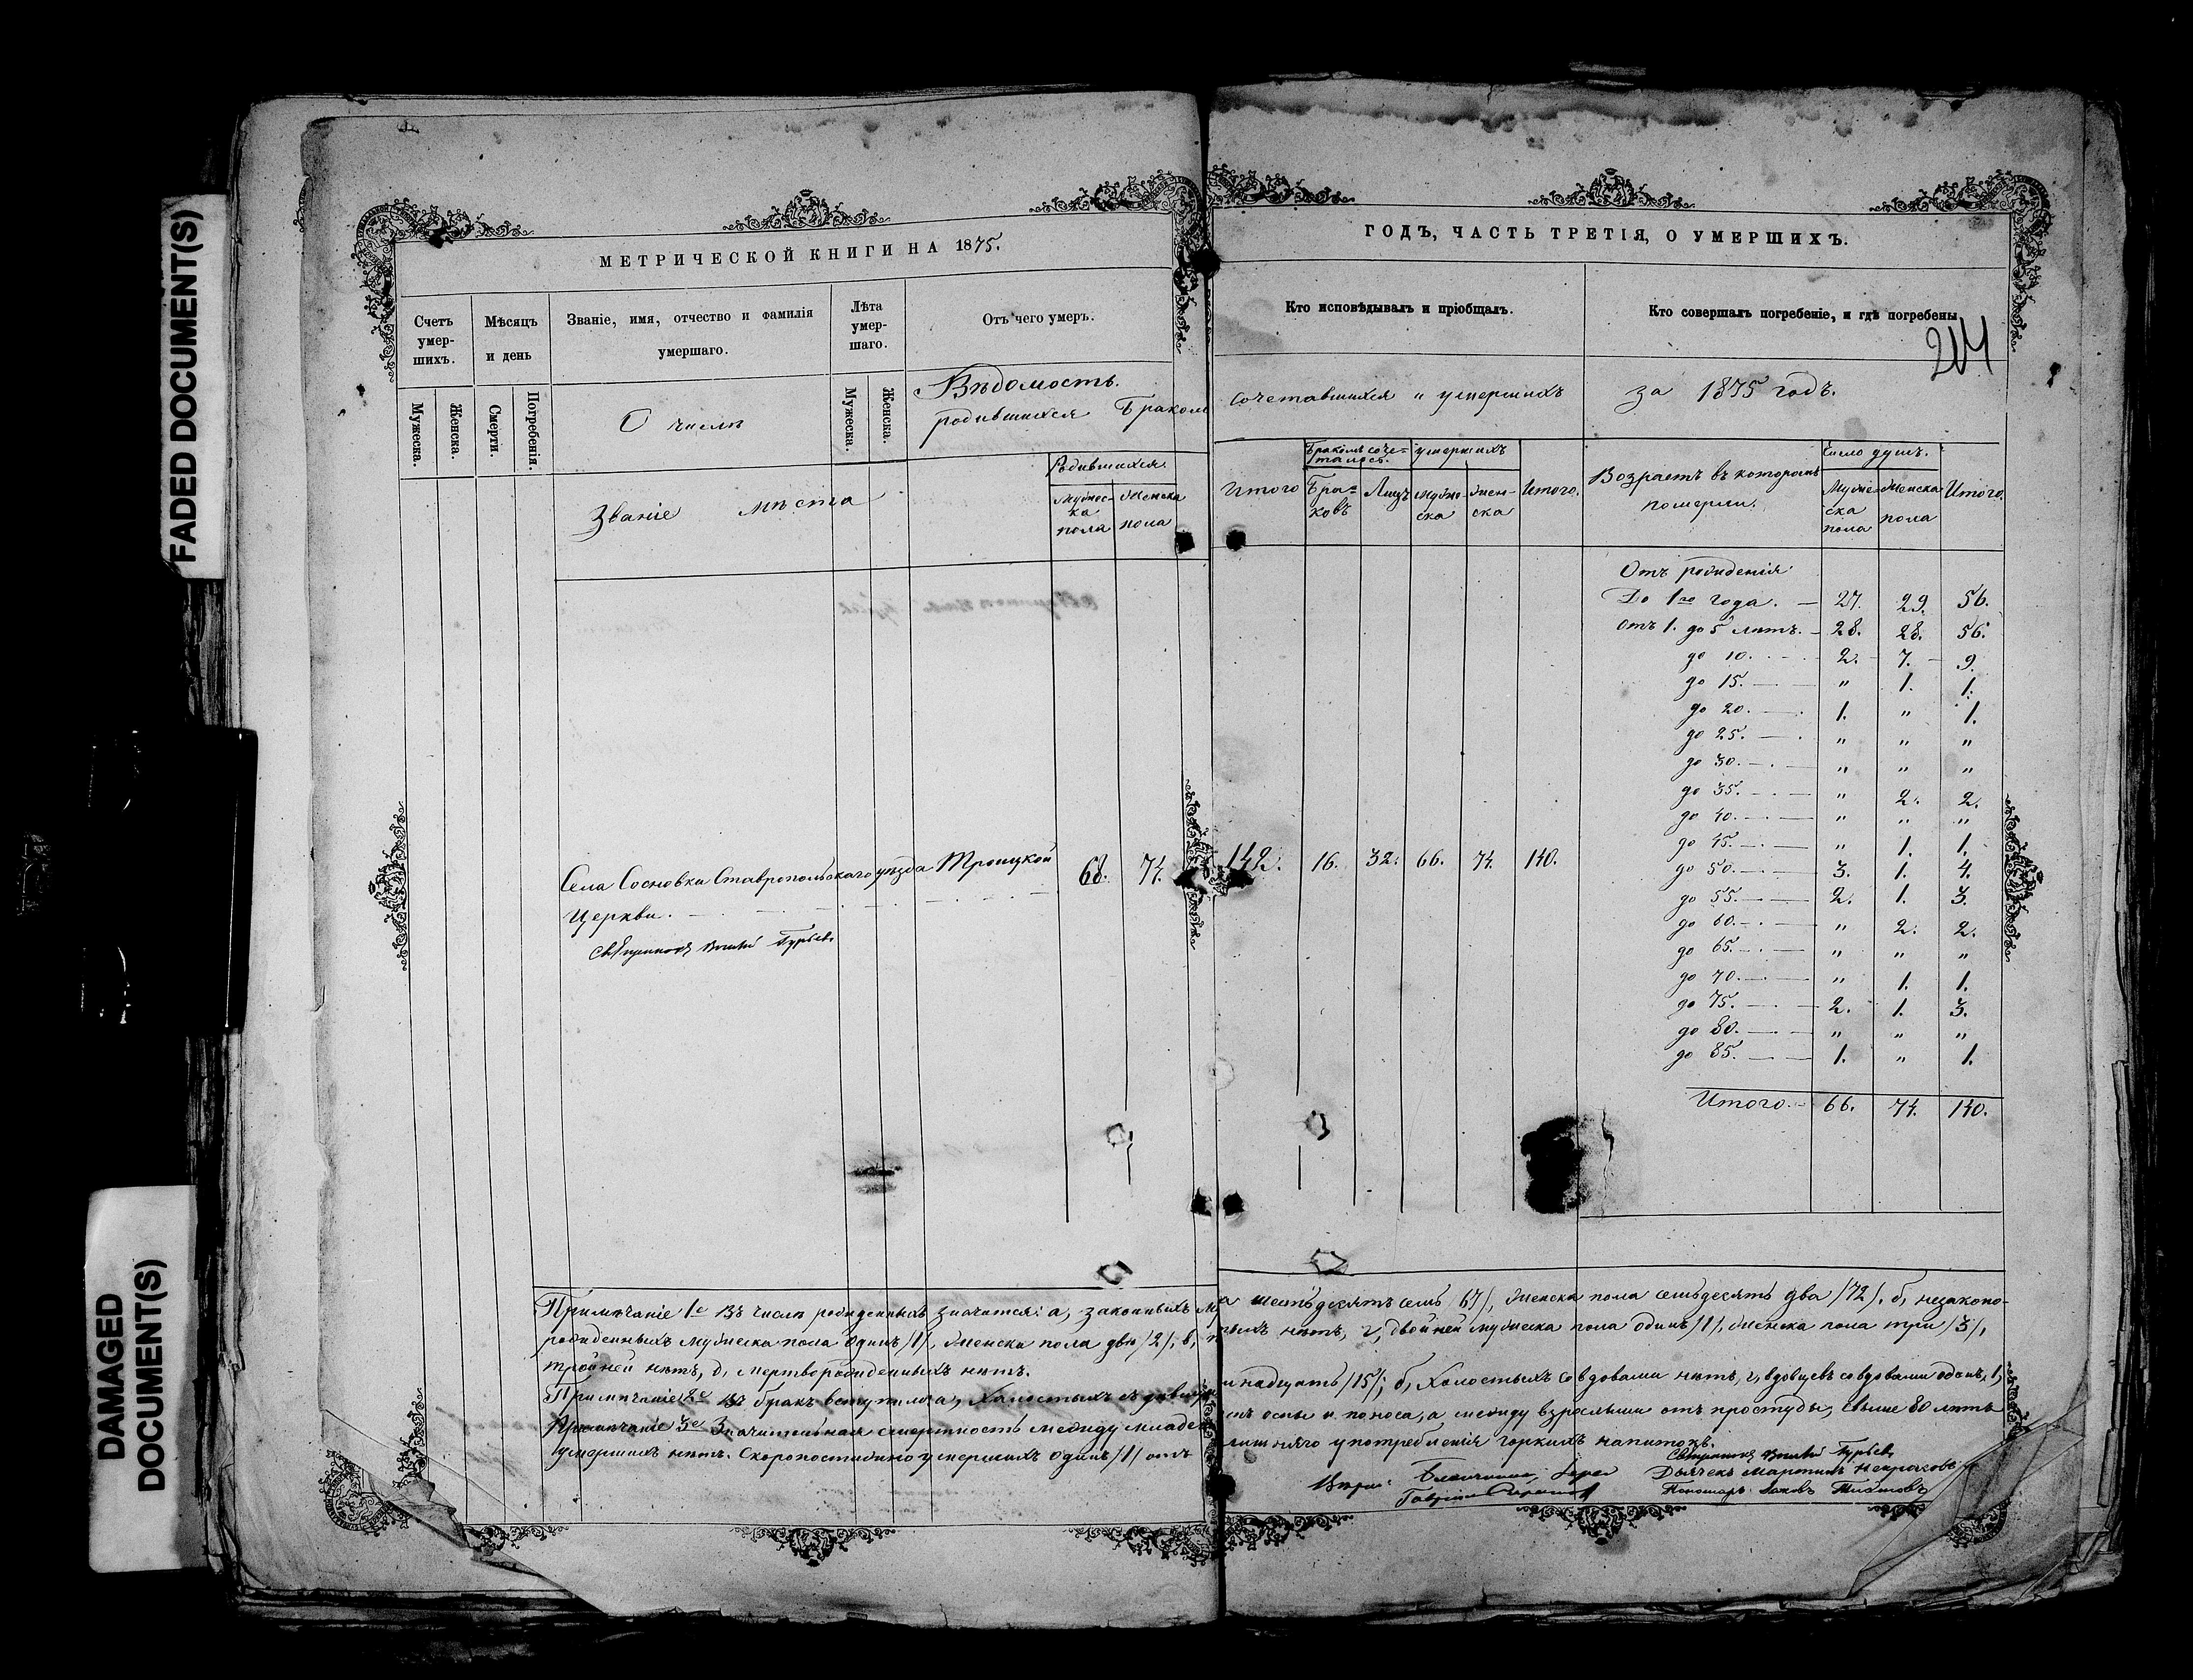 FADED DOCUMENT(S)
DAMAGED DOCUMENT(S)
МЕТРИЧЕСКОЙ КНИГИ НА 1875.
Счетъ умер-шихъ.
Мѣсяцъ и день
Званіе, имя, отчество и фамилія умершаго.
Лѣта умер-шаго.
Отъ чего умеръ.
Мужеска.
Женска.
Смерти.
Погребенія.
О числѣ
Мужеска.
Женска.
Вѣдомость.
родившихся Бракомъ
Званіе мѣста
Родившихся
Мужес-ка пола
Женска пола
Села Сосновка Ставропольскаго уѣзда Троицкой 68. 74.
Церкви.
Священникъ Гурьевъ
ГОДЪ, ЧАСТЬ ТРЕТІЯ, О УМЕРШИХЪ.
Кто исповѣдывалъ и пріобщалъ.
Кто совершалъ погребеніе, и гдѣ погребены
204
сочетавшихся и умершихъ за 1875 годъ.
Итого
Бракомъ соче-талось.
Бра-ковъ
Лицъ
умершихъ
муже-ска
жен-ска
Итого.
Возрастъ въ которомъ померли.
Число душъ.
Муже-ска пола
Женска пола
Итого.
142. 16. 32. 66. 74. 140.
Отъ рожденія
До 1го года. 27. 29. 56.
Отъ 1. до 5 лѣтъ. 28. 28. 56.
до 10. 2. 7. 9.
до 15. " 1. 1.
до 20. 1. " 1.
до 25. " " "
до 30. " " "
до 35. " 2. 2.
до 40. " " "
до 45. " 1. 1.
до 50. 3. 1. 4.
до 55. 2. 1. 3.
до 60. " 2. 2.
до 65. " " "
до 70. " 1. 1.
до 75. 2. 1. 3.
до 80. " " "
до 85. 1. " 1.
Итого. 66. 74. 140.
Примѣчаніе 1е Въ числѣ рожденныхъ значится: а, законныхъ шестьдесятъ семь /67/, женска пола семьдесятъ два /72/. б, незаконо-
рожденныхъ мужеска пола одинъ /1/, женска пола двѣ /2/; в, нѣтъ, г, двойней мужеска пола одинъ /1/, женска пола три /3/,
тройней нѣтъ, д, мертворожденныхъ нѣтъ.
Примѣчаніе 2е Въ бракъ вступило: а, Холостыхъ съ /15/; б, Холостыхъ со вдовами нѣтъ, г, вдовцевъ со вдовами одинъ, 1,
Примѣчаніе 3е Значительная смертность между оспы и поноса, а между взрослыми отъ простуды, свыше 80 лѣтъ
умершихъ нѣтъ. Скоропостижно умершихъ одинъ /1/ отъ употребленія горкихъ напитокъ.
Священникъ Гурьевъ
Дьячекъ Мартинъ Некрасовъ
Пономарь Яковъ